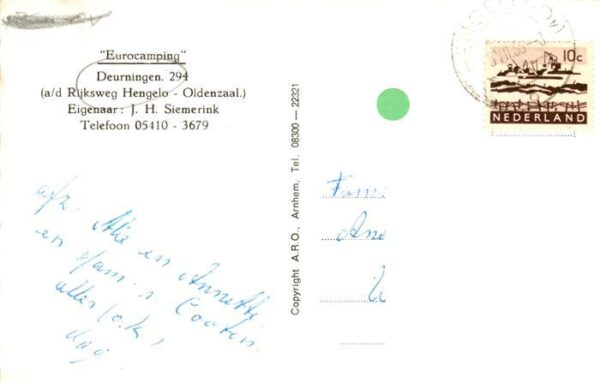 "Eurocamping"
Deurningen. 294
(a/d Rijksweg Hengelo - Oldenzaal.)
Eigenaar: J. H. Siemerink
Telefoon 05410 - 3679
Copyright A.R.O., Arnhem, Tel. 08300 — 22321
10c
NEDERLAND
afz. Mie en Annette
en fam.
alles (o.k.)
dag
Fam
An